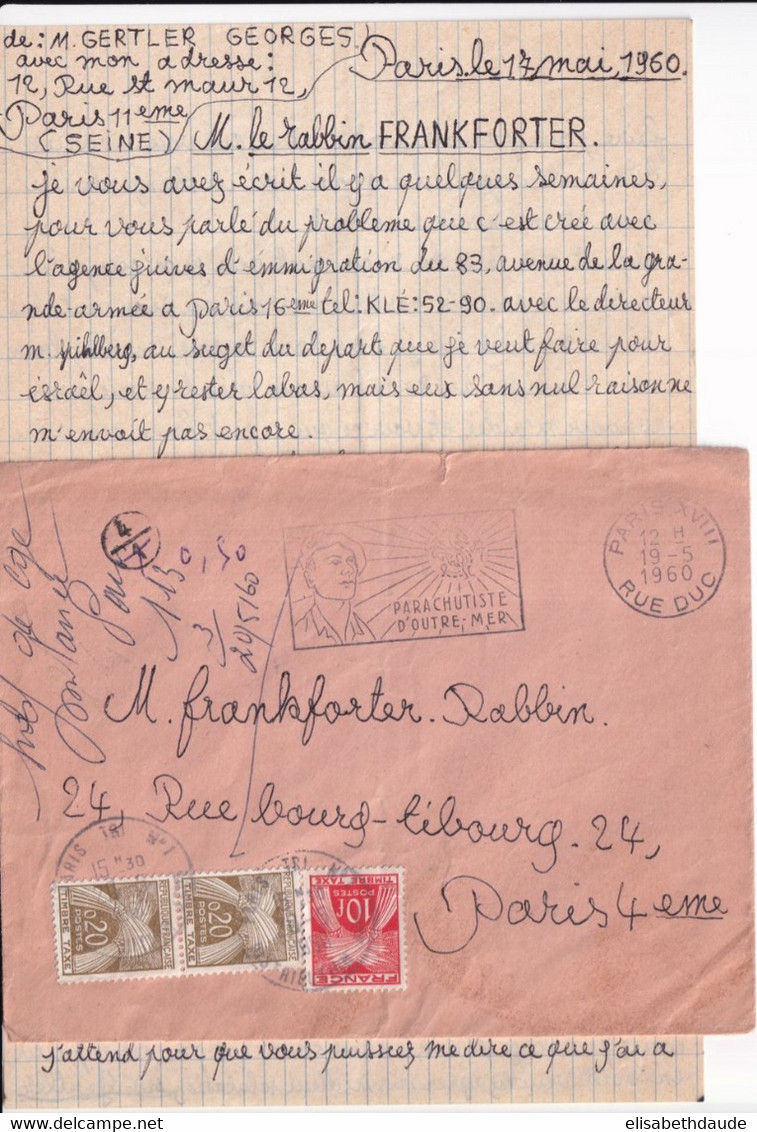 de: M. GERTLER GEORGES.
avec mon adresse:
12, Rue st maur 12,
Paris 11eme
(SEINE)
Paris.le 17 mai, 1960.
M. le rabbin FRANKFORTER.
je vous avez écrit il y a quelques semaines,
pour vous parlé du probleme que c'est créé avec
l'agence juives d'emmigration du 83, avenue de la gra-
nde-armée a Paris 16eme tel: KLÉ: 52-90. avec le directeur
m. spihlberg, au suget du depart que je veut faire pour
israêl, et y rester labas, mais eux sans nul raisonne
m'envoit pas encore.
4
0,50
113
3
20/5/60
PARACHUTISTE
D'OUTRE-MER
PARIS XVIII
12 H
19-5
1960
RUE DUC
M. frankforter. Rabbin.
24, Rue bourg-tibourg. 24,
Paris 4eme
PARIS TRI N°1
15 H 30
0,20
POSTES
TIMBRE TAXE
REPUBLIQUE FRANÇAISE
0,20
POSTES
TIMBRE TAXE
REPUBLIQUE FRANÇAISE
TIMBRE TAXE
10F
POSTES
FRANCE
j'attend pour que vous puissiez me dire ce que j'ai a
elisabethdaude